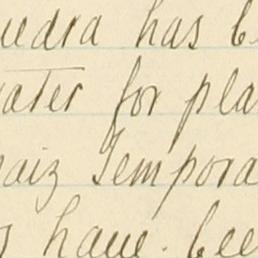 uedra has be
water for pla
maiz Tempora
have been